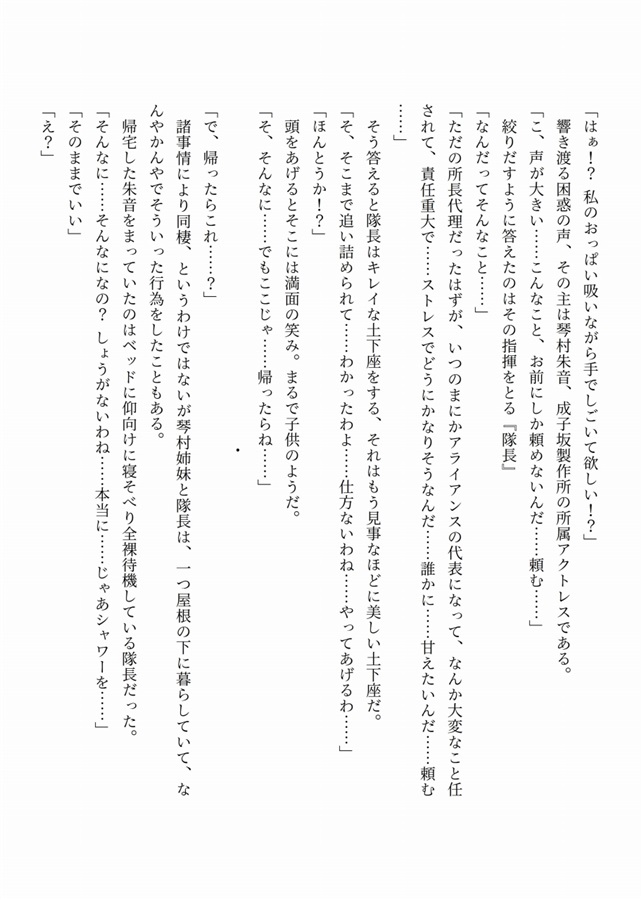 「はぁ！？　私のおっぱい吸いながら手でしごいて欲しい！？」
響き渡る困惑の声、その主は琴村朱音、成子坂製作所の所属アクトレスである。
「こ、声が大きい……こんなこと、お前にしか頼めないんだ……頼む……」
絞りだすように答えたのはその指揮をとる『隊長』
「なんだってそんなこと……」
「ただの所長代理だったはずが、いつのまにかアライアンスの代表になって、なんか大変なこと任
されて、責任重大で……ストレスでどうにかなりそうなんだ……誰かに……甘えたいんだ……頼む
……」
そう答えると隊長はキレイな土下座をする、それはもう見事なほどに美しい土下座だ。
「そ、そこまで追い詰められて……わかったわよ……仕方ないわね……やってあげるわ……」
「ほんとうか！？」
頭をあげるとそこには満面の笑み。まるで子供のようだ。
「そ、そんなに……でもここじゃ……帰ったらね……」
・
「で、帰ったらこれ……？」
諸事情により同棲、というわけではないが琴村姉妹と隊長は、一つ屋根の下に暮らしていて、な
んやかんやでそういった行為をしたこともある。
帰宅した朱音をまっていたのはベッドに仰向けに寝そべり全裸待機している隊長だった。
「そんなに……そんなになの？　しょうがないわね……本当に……じゃあシャワーを……」
「そのままでいい」
「え？」